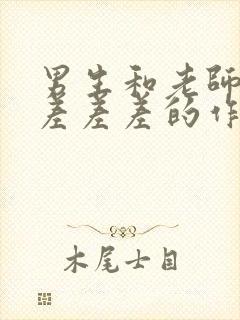 男生和老師
差差差的作
木尾士目